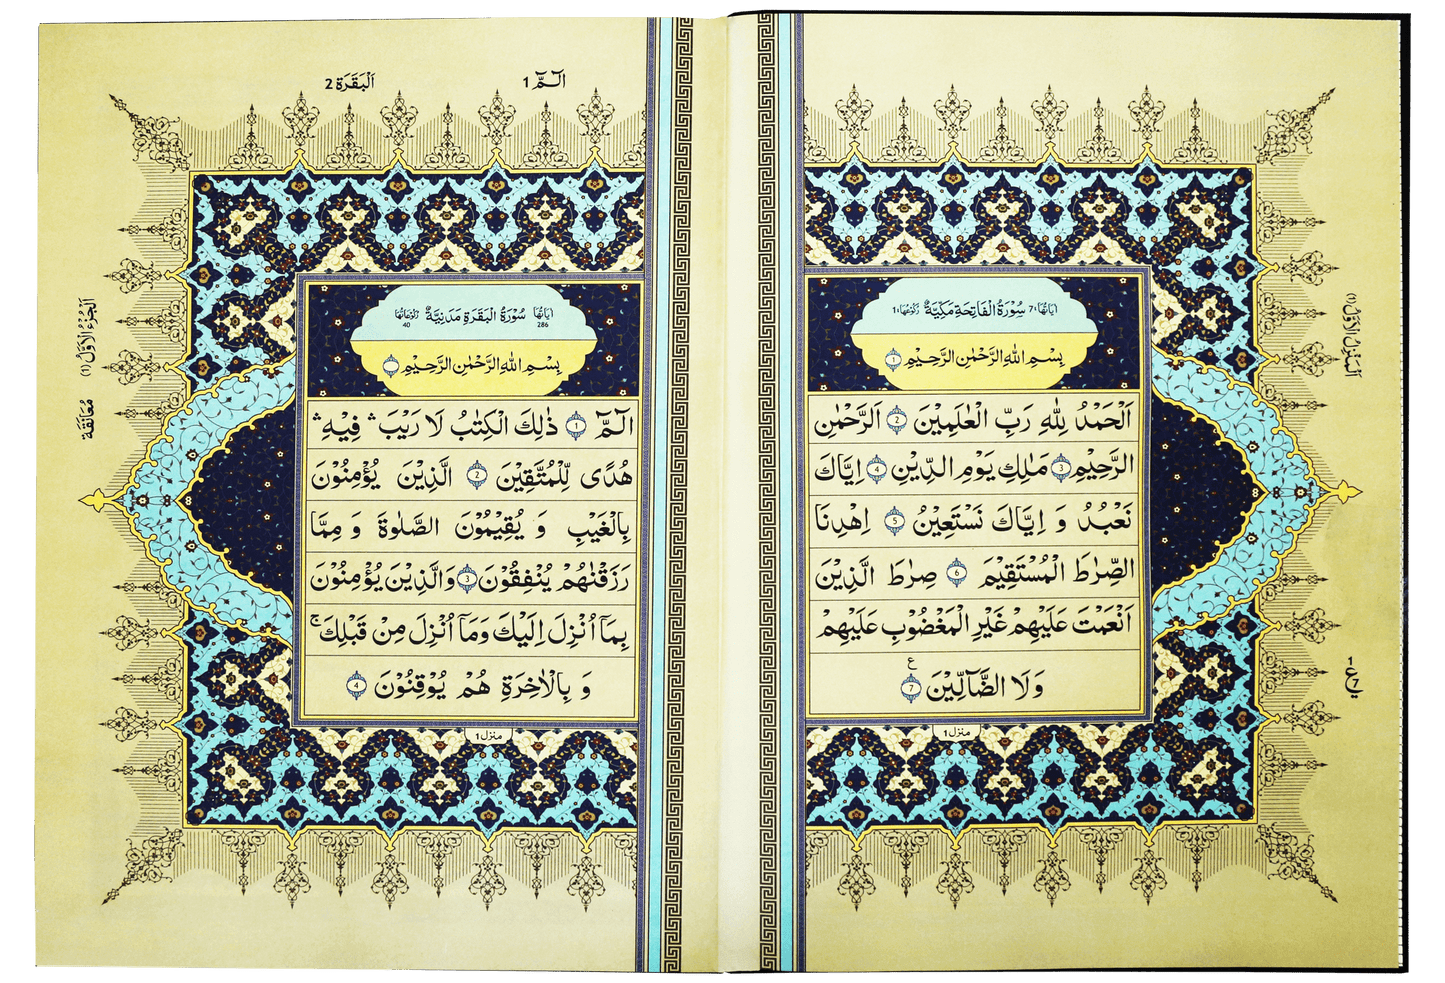 اٰيَاتُهَا ٧ سُوْرَةُ الْفَاتِحَةِ مَكِّيَّةٌ رُكُوْعُهَا ١
بِسْمِ اللّٰهِ الرَّحْمٰنِ الرَّحِيْمِ 1
اَلْحَمْدُ لِلّٰهِ رَبِّ الْعٰلَمِيْنَ 2 اَلرَّحْمٰنِ
الرَّحِيْمِ 3 مٰلِكِ يَوْمِ الدِّيْنِ 4 اِيَّاكَ
نَعْبُدُ وَ اِيَّاكَ نَسْتَعِيْنُ 5 اِهْدِنَا
الصِّرٰطَ الْمُسْتَقِيْمَ 6 صِرٰطَ الَّذِيْنَ
اَنْعَمْتَ عَلَيْهِمْ غَيْرِ الْمَغْضُوْبِ عَلَيْهِمْ
ع
وَلَا الضَّآلِّيْنَ 7
منزل 1
اَلْمَنْزِلُ الْاَوَّلُ (1)
الٓمّٓ 1
اَلْبَقَرَة 2
اٰيَاتُهَا 286 سُوْرَةُ الْبَقَرَةِ مَدَنِيَّةٌ رُكُوْعَاتُهَا 40
بِسْمِ اللّٰهِ الرَّحْمٰنِ الرَّحِيْمِ
الٓمّٓ 1 ذٰلِكَ الْكِتٰبُ لَا رَيْبَ ۛ فِيْهِ ۛ
هُدًى لِّلْمُتَّقِيْنَ 2 الَّذِيْنَ يُؤْمِنُوْنَ
بِالْغَيْبِ وَ يُقِيْمُوْنَ الصَّلٰوةَ وَ مِمَّا
رَزَقْنٰهُمْ يُنْفِقُوْنَ 3 وَالَّذِيْنَ يُؤْمِنُوْنَ
بِمَآ اُنْزِلَ اِلَيْكَ وَمَآ اُنْزِلَ مِنْ قَبْلِكَ ۚ
وَ بِالْاٰخِرَةِ هُمْ يُوْقِنُوْنَ 4
منزل 1
اَلْجُزْءُ الْاَوَّلُ (1)
مُعَانَقَة